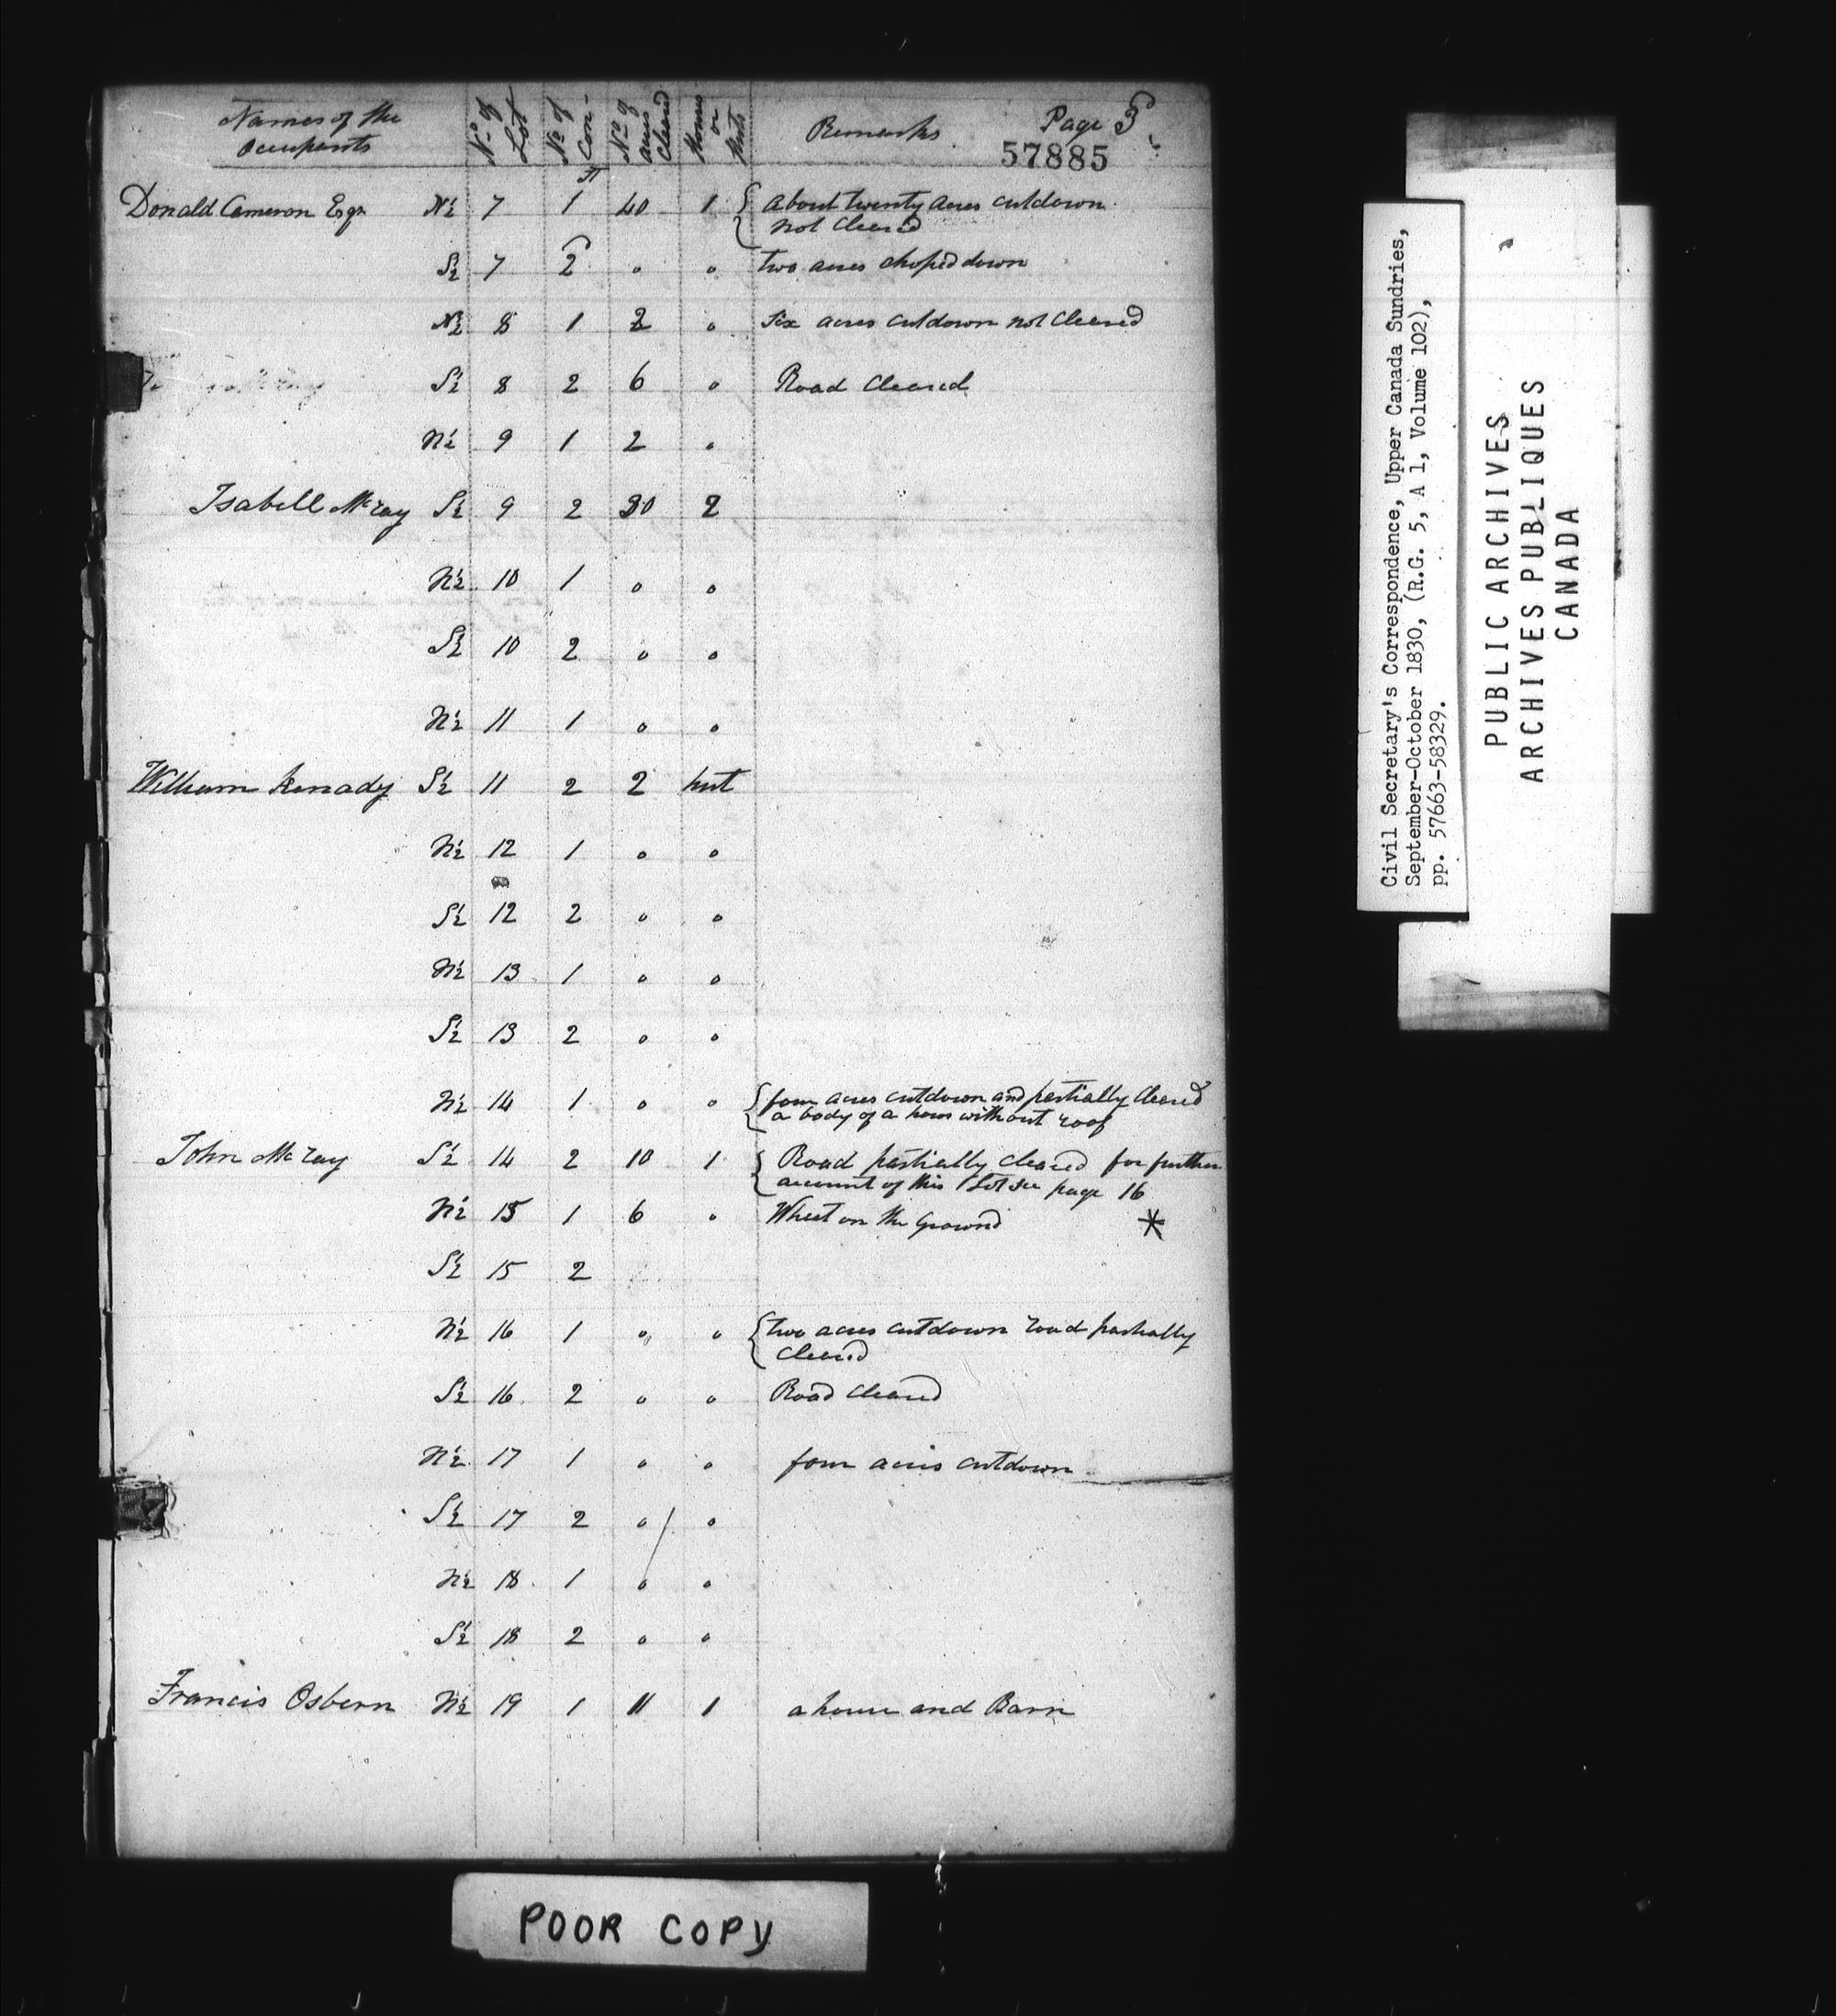 Names of the Occupants | No of Lot | No of Con- | No of acres Cleared | Houses or Huts | Remarks | Page 3
57885
Donald Cameron Esqr N½ 7 1st 40 1 { about twenty acres cutdown
not Cleared
S½ 7 2 0 0 two acres choped down
N½ 8 1 2 0 Six acres cutdown not Cleared
S½ 8 2 6 0 Road Cleared
N½ 9 1 2 0
Isabell McCray S½ 9 2 30 2
N½ 10 1 0 0
S½ 10 2 0 0
N½ 11 1 0 0
William Kenady S½ 11 2 2 hut
N½ 12 1 0 0
S½ 12 2 0 0
N½ 13 1 0 0
S½ 13 2 0 0
N½ 14 1 0 0 { four acres cutdown and partially Cleared
a body of a hous without roof
John McCray S½ 14 2 10 1 { Road partially cleared for further
account of this Lot see page 16
N½ 15 1 6 0 Wheet on the Ground *
S½ 15 2
N½ 16 1 0 0 { two acres cutdown road partially
Cleared
S½ 16 2 0 0 Road Cleared
N½ 17 1 0 0 four acres cutdown
S½ 17 2 0 0
N½ 18 1 0 0
S½ 18 2 0 0
Francis Osbern N½ 19 1 11 1 a house and Barn
POOR COPY
Civil Secretary's Correspondence, Upper Canada Sundries,
September-October 1830, (R.G. 5, A 1, Volume 102),
pp. 57663-58329.
PUBLIC ARCHIVES
ARCHIVES PUBLIQUES
CANADA